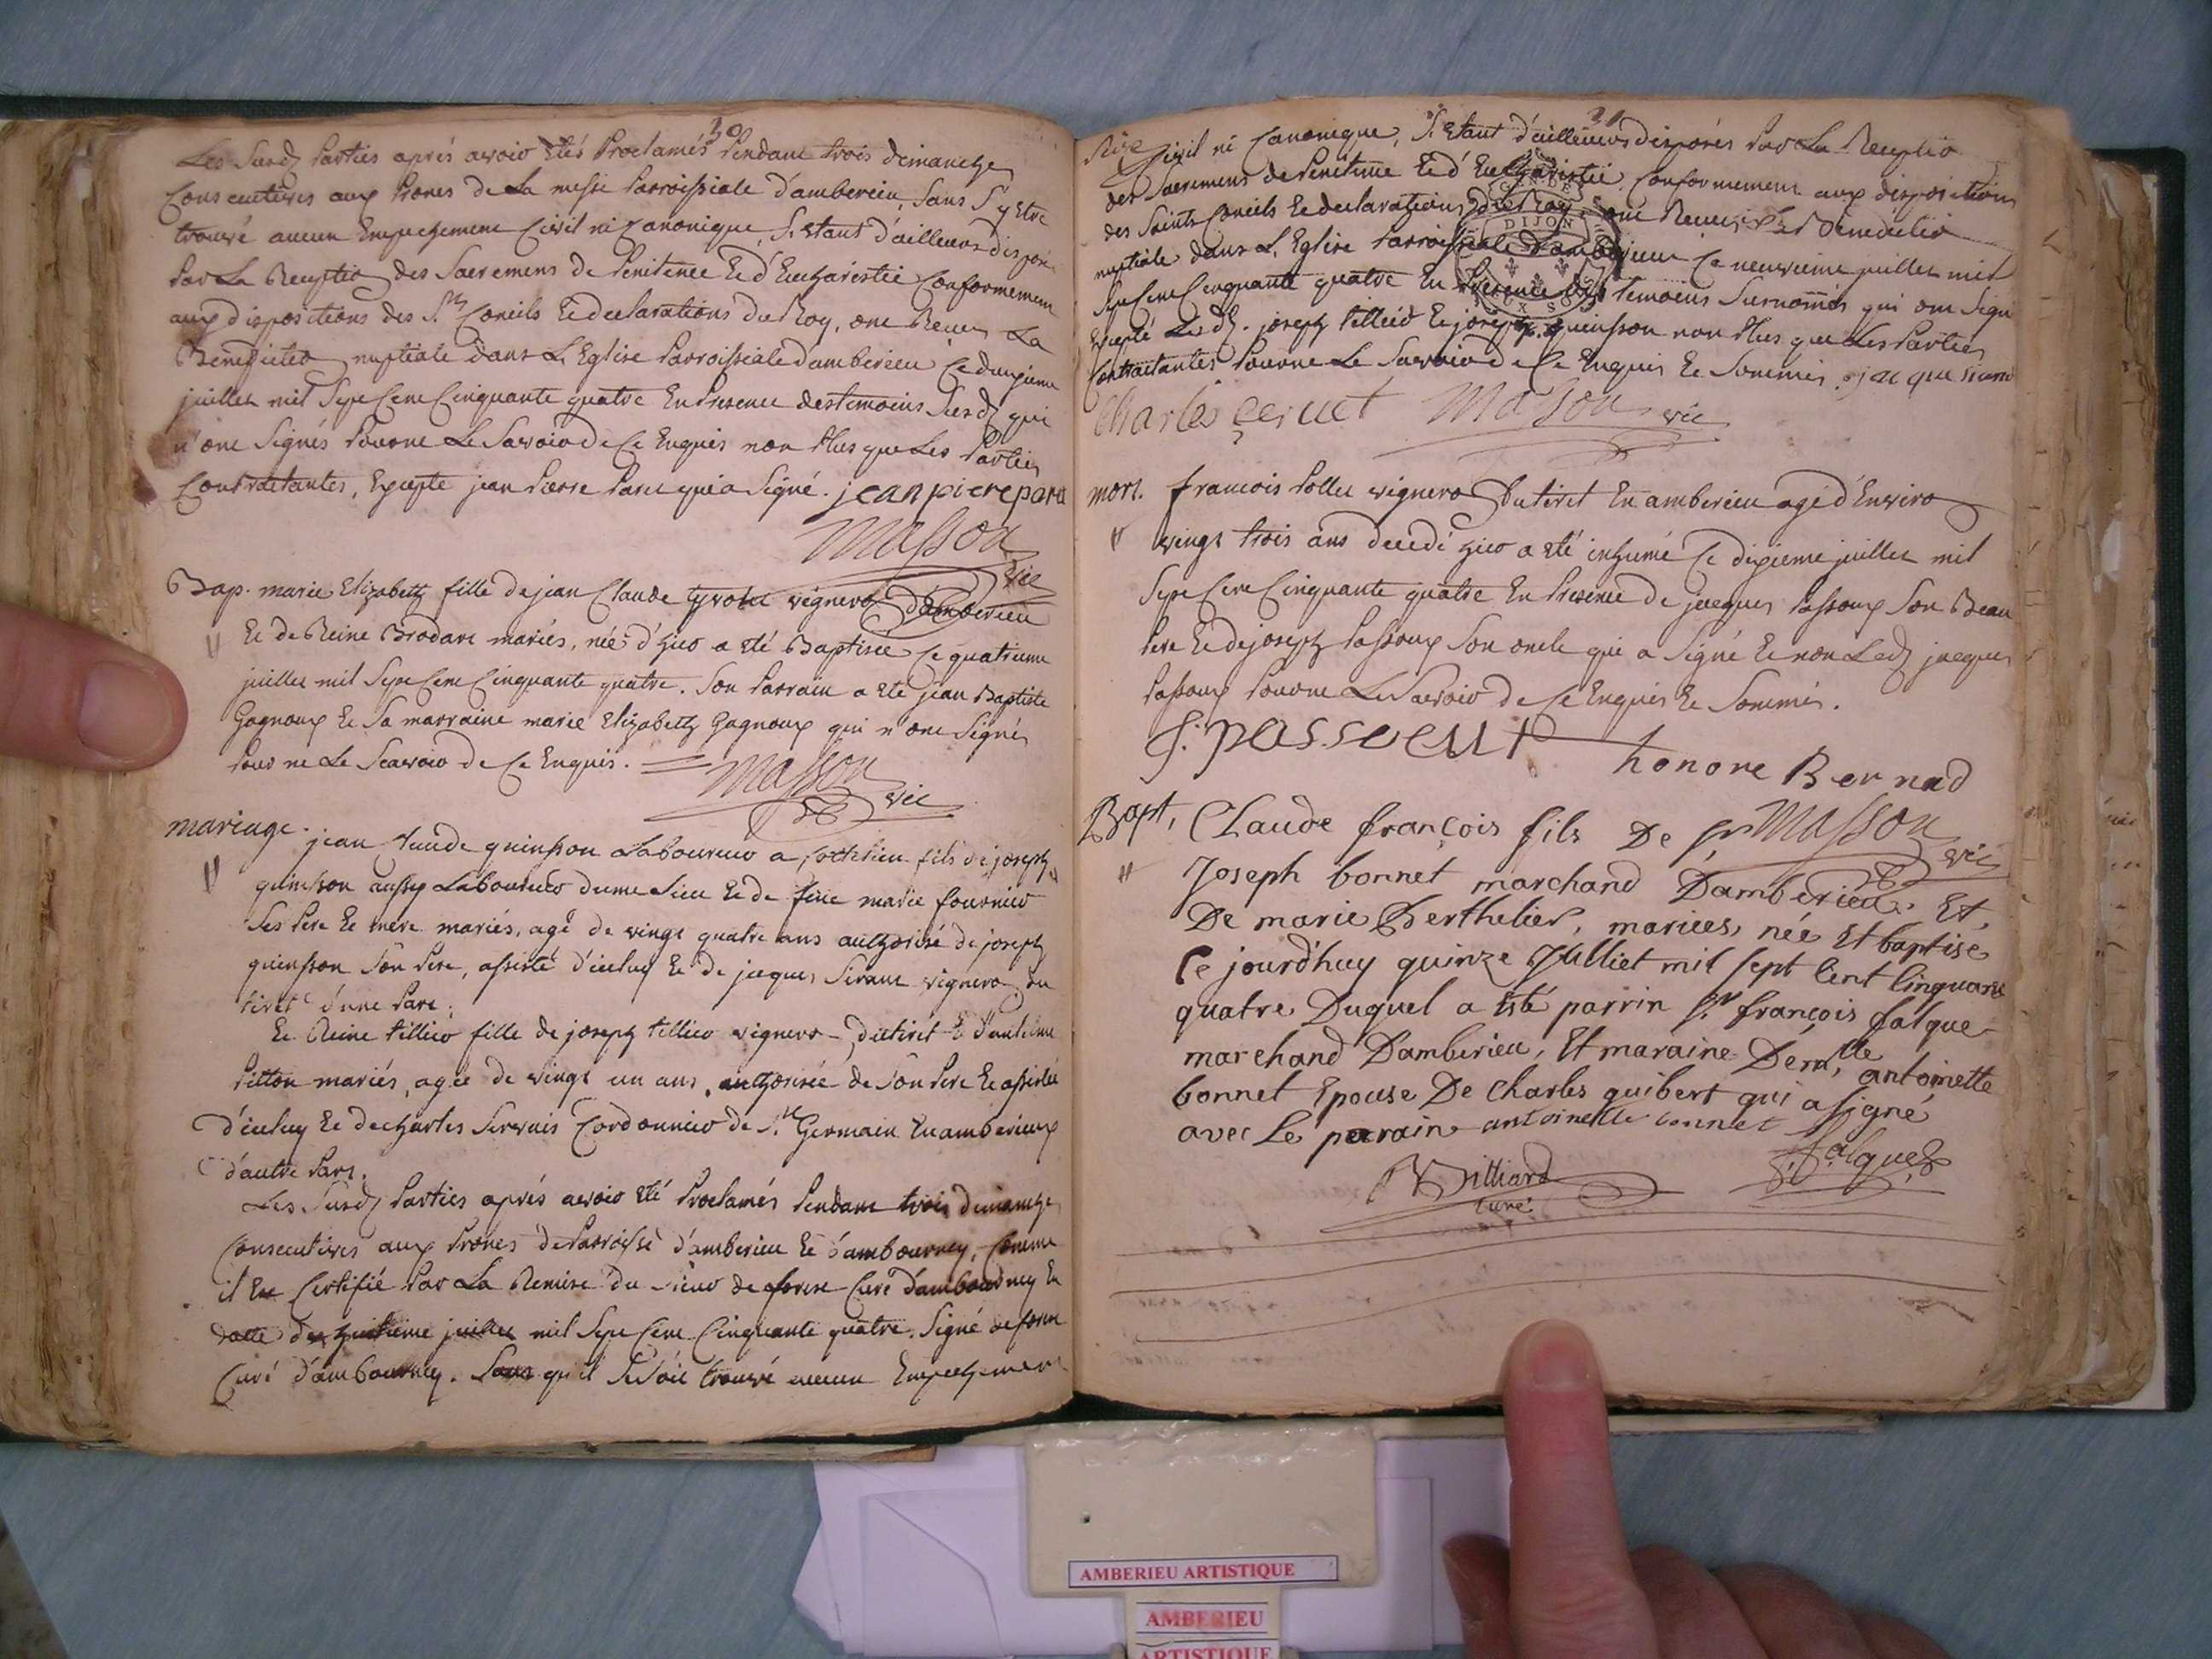 30
Les Susd. Parties aprés avoir étés Proclamés Pendant trois dimanches
Consecutives aux Prones de La messe Parroissiale d'amberieu, Sans S'y Etre
trouvé aucun Empechement Civil ni Canonique, S'etant d'ailleurs disposés
Par La Reception des Sacremens de Penitence Et d'Eucharistie Conformement
aux dispositions des Sts Conciles Et declarations du Roy, ont Recus La
Benediction nuptiale dans L'Eglise Parroissiale damberieu Ce
juillet mil Sept Cent Cinquante quatre En Presence des temoins Susd. qui
n'ont Signés Pour ne Le Savoir de Ce Enquis non Plus que Les Parties
Contractantes, Excepté jean Pierre qui a Signé. jean piere
Masson
vic
Bap. marie Elizabeth fille de jean Claude vigneron d'amberieu
Et de Reine Brodart mariés, née d'hier a été Baptisée Ce quatrieme
juillet mil Sept Cent Cinquante quatre. Son Parrain a eté jean Baptiste
Gagnoux Et Sa marraine marie Elizabeth Gagnoux qui n'ont Signés
Pour ne Le Scavoir de Ce Enquis.
Masson vic
mariage. jean Claude quinsson Laboureur a fils de joseph
quinsson aussy Laboureur dume Lieu Et de marie fournier
Ses Pere Et mere mariés, agé de vingt quatre ans authorisé de joseph
quinsson Son Pere, assisté d'iceluy Et de jacques Sirant vigneron du
tiret d'une Part.
Et Reine tillier fille de joseph tillier vigneron du tiret Et d'antheme
Pitton mariés, agée de vingt un ans, authorisée de Son Pere Et assistée
d'iceluy Et de charles Servais Cordonnier de St Germain En amberieux
d'autre Part.
Les Susd. Parties aprés avoir été Proclamés Pendant trois dimanches
Consecutives aux Prones de Parroisse d'amberieu Et d'ambournay, Comme
il Est Certifié Par La Remise du Sieur de forest Curé d'ambournay En
datte du huitieme juillet mil Sept Cent Cinquante quatre. Signé de forest
Curé d'ambournay. Sans qu'il Se Soit trouvé aucun Empechement
31
Civil ni Canonique, S'etant d'ailleurs disposés Par La Reception
des Sacremens de Penitence Et d'Eucharistie Conformement aux dispositions
des Saints Conciles Et declarations du Roy, ont Recus La Benediction
nuptiale dans L'Eglise Parroissiale d'amberieu Ce neuvieme juillet mil
Sept Cent Cinquante quatre En Presence des temoins Surnommés qui ont Signé
Excepté Lesd. joseph tillier Et joseph quinsson non Plus que Les Parties
Contractantes Pour ne Le Savoir de Ce Enquis Et Sommés. jacque sirand
Charles Masson vic
DIJON
mort. francois Pollet vigneron du tiret En amberieu agé d'Environ
vingt trois ans decédé hier a été inhumé Ce dixieme juillet mil
Sept Cent Cinquante quatre En Presence de jacques Passoux Son Beau
Pere Et de joseph Passoux Son oncle qui a Signé Et non Led. jacques
Passoux Pour ne Le Savoir de Ce Enquis Et Sommés.
J. passeut
honore Bernad
Masson
vic
Bapt. Claude françois fils De Sr
Joseph bonnet marchand D'amberieu Et
De marie Berthelier, mariees, née Et baptisé
Ce jourd'huy quinze Julliet mil sept Cent Cinquante
quatre Duquel a Esté parrin Sr françois falque
marchand D'amberieu, Et maraine Demlle antoinette
bonnet Epouse De Charles guibert qui a signé
avec Le parain antoinette bonnet
Billiard
Curé
f. falque
AMBERIEU ARTISTIQUE
AMBERIEU
ARTISTIQUE